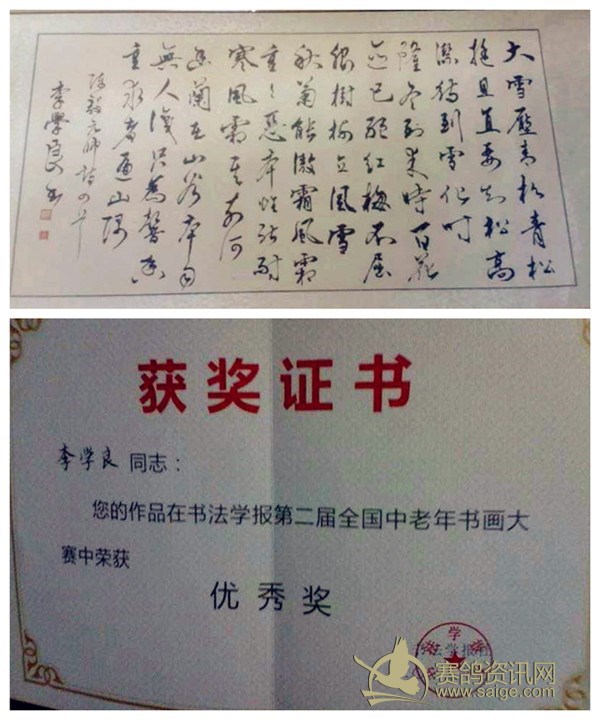 大雪壓青松青松
挺且直要知松高
潔待到雪化时
隆冬到来时百花
迹已絕红梅不屈
服樹樹立風雪
秋菊能傲霜風霜
重重惡本性能耐
寒風霜其奈何
幽蘭在山谷本自
無人識只為馨香
重求者遍山隅
陈毅元帅诗四首
李學良书
获奖证书
李学良 同志：
您的作品在书法学报第二届全国中老年书画大
赛中荣获
优秀奖
赛鸽资讯网
www.saige.com